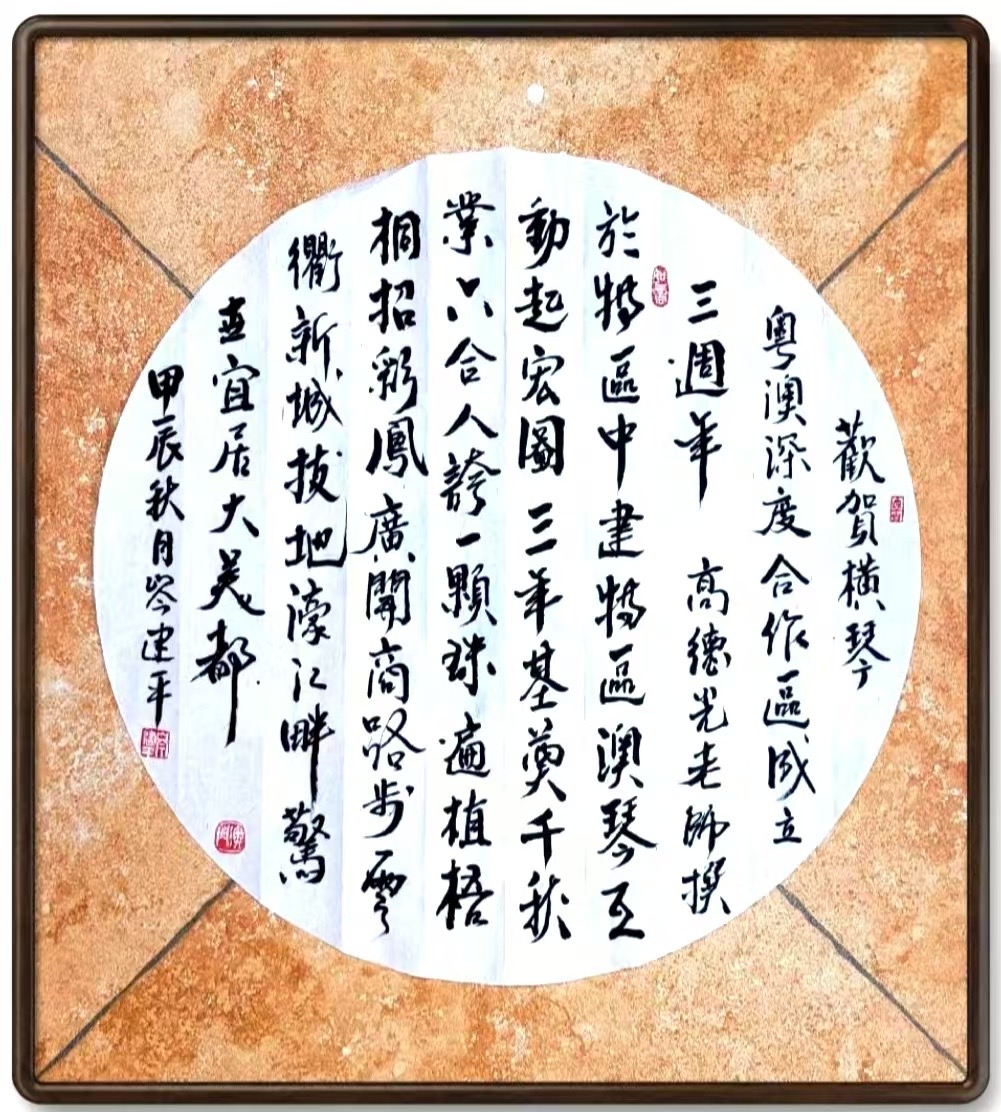 歡賀橫琴
粵澳深度合作區成立
三週年 高德光老師撰
於特區中建特區澳琴互
動起宏圖三年基奠千秋
業六合人誇一顆珠遍植梧
桐招彩鳳廣開商路步雲
衢新城拔地濠江畔驚
宜居大美都
甲辰秋月岑建平
澳門